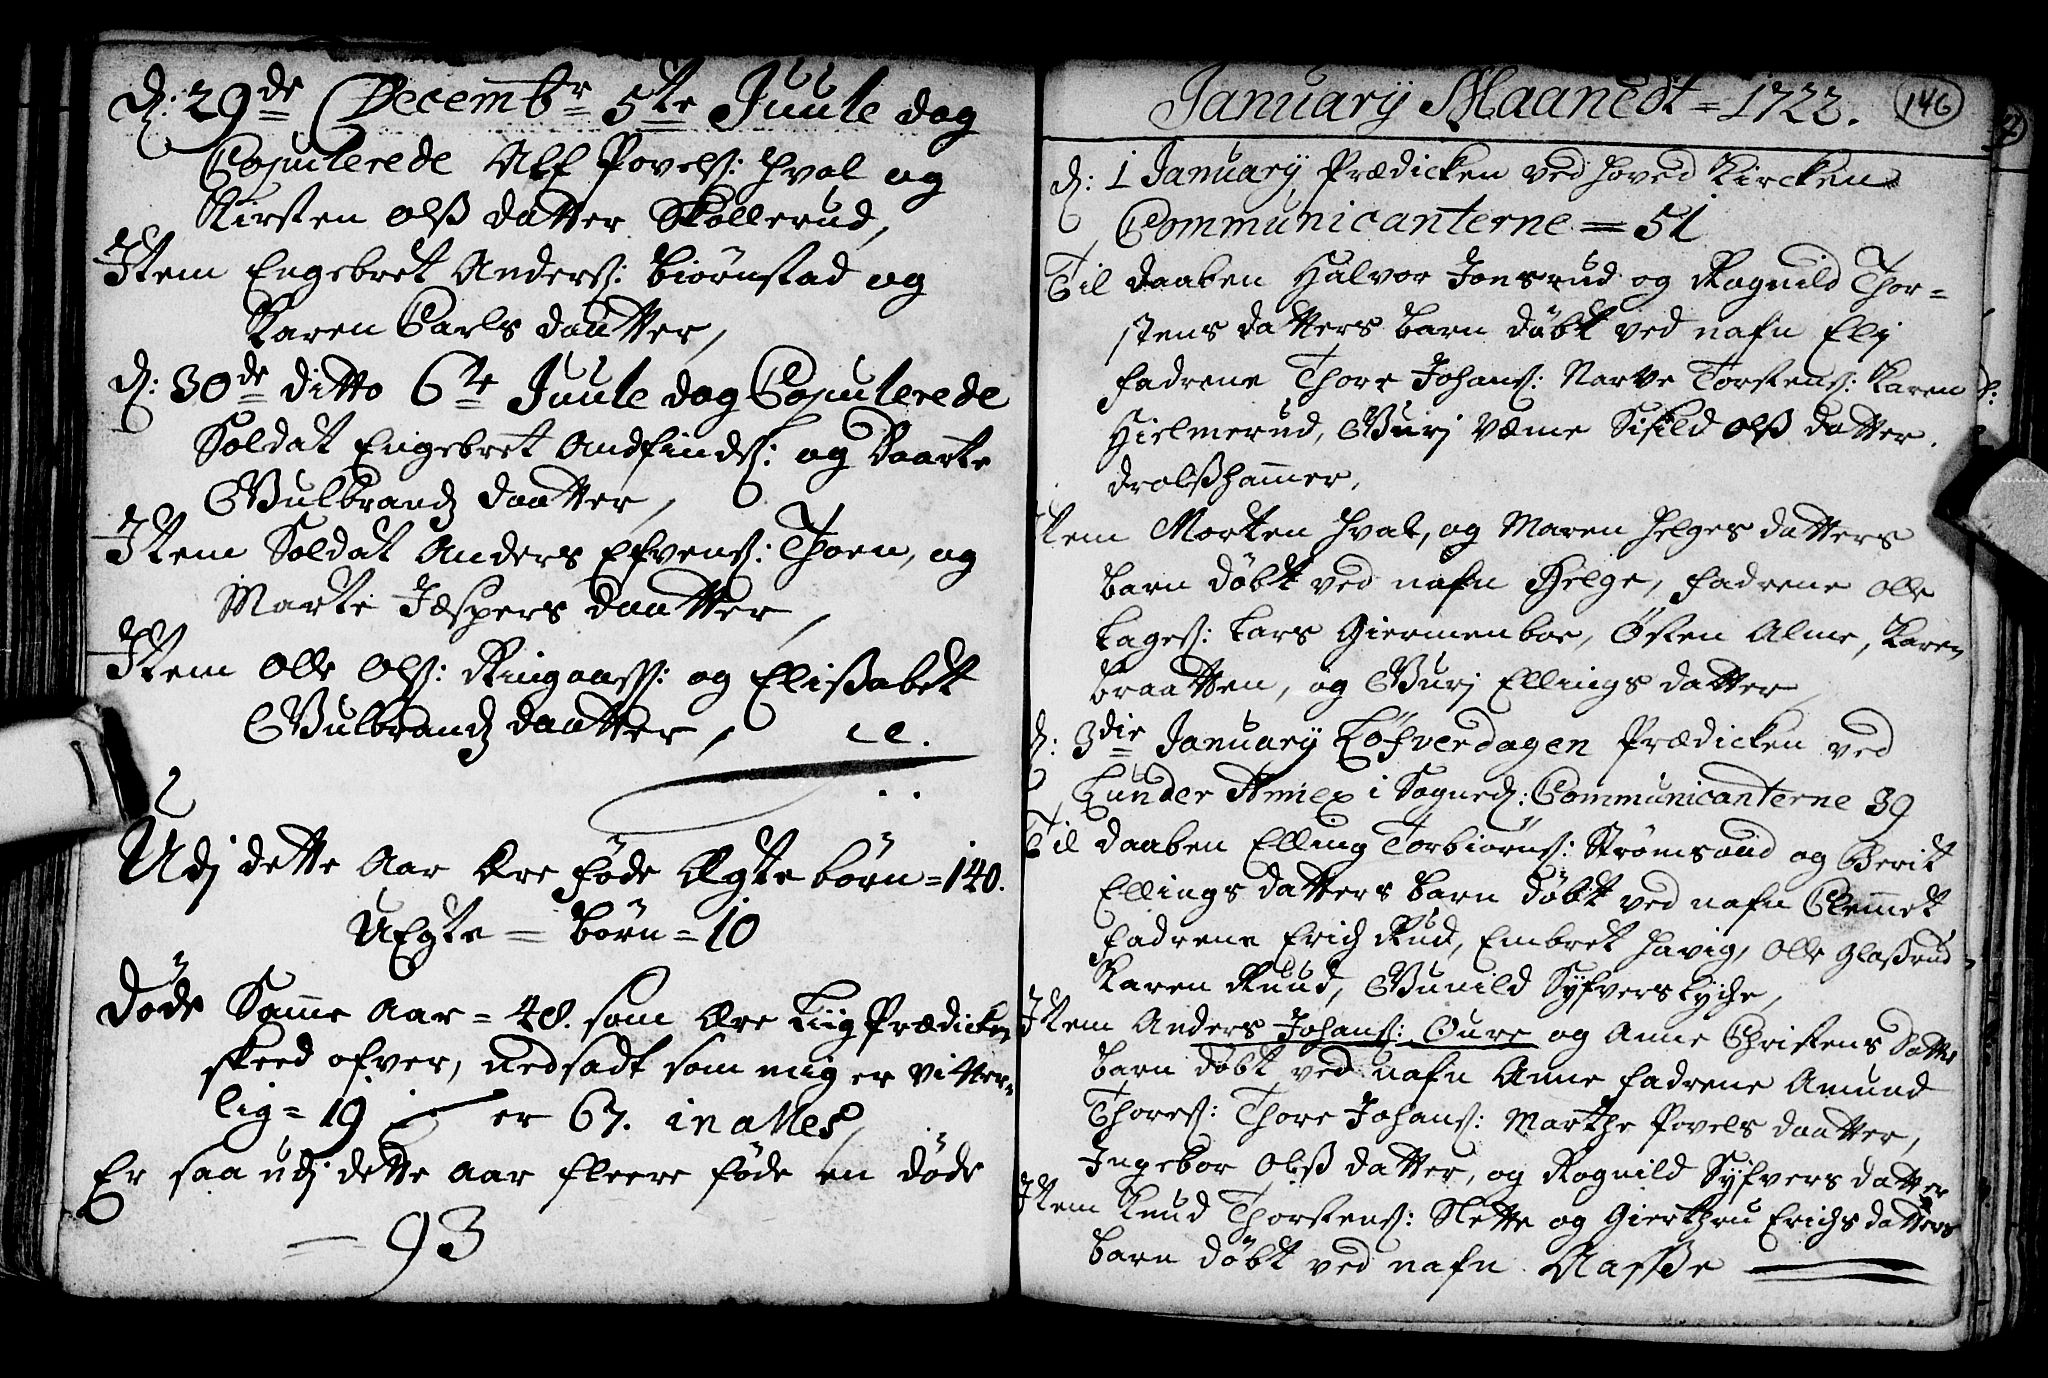 d: 29de Decembr 5te Juule dag
Copulerede Alf Povels: Hval og
Kirsten Olß datter Skollerud,
Item Engebret Anders: Biørnstad og
Karen Carls daatter,
d: 30de ditto 6te Juule dag Copulerede
Soldat Engebret Andfinds: og Baarte
Gulbrands daatter,
Item Soldat Anders Efvens: Thoen, og
Marte Jæspers daatter,
Item Olle Ols: Ringaass: og Elißabet
Gulbrands daatter,
Udj dette Aar Ere føde Ægte børn = 140.
UEgte = børn = 10
Døde Samme Aar = 48. som Ere Liig Prædicken
skeed ofver, nedsadt som mig er vitter=
lig = 19 er 67. in alles,
Er saa udj dette aar fleere føde en døde
= 93
January Maanedt = 1722.
146
d: 1 January Prædicken ved hoved Kircken
Communicanterne = 51
Til daaben Halvor Jonsrud og Ragnild Thor=
stens datters barn døbt ved nafn Elj
fadrene Thore Johans: Narve Torstens: Karen
Hielmerud, Gurj Væme Sisild Olß datter.
Drolßhammer,
Item Morten Hval, og Maren Helges datters
barn døbt ved nafn Helge, fadrene Olle
Lages: Lars Giermenboe, Østen Alme, Karen
braatten, og Gurj Ellings datter,
d: 3die January Løfverdagen Prædicken ved
Lunder Annex i Sogned: Communicanterne 39
Til daaben Elling Torbiørns: Strømsoud og Berit
Ellings datters barn døbt ved nafn Clemmet
fadrene Erich Rud, Embret Havig, Olle Glaßrud
Karen Ruud, Gunild Syfvers Lyche,
Item Anders Johans: Oure og Anne Christens datte
barn døbt ved nafn Anne fadrene Amund
Thores: Thore Johans: Marthe Povels daatter,
Ingebor Olß datter, og Ragnild Syfvers datter
Item Knud Thorstens: Slette og Gierthru Erichs datters
barn døbt ved nafn Aasße